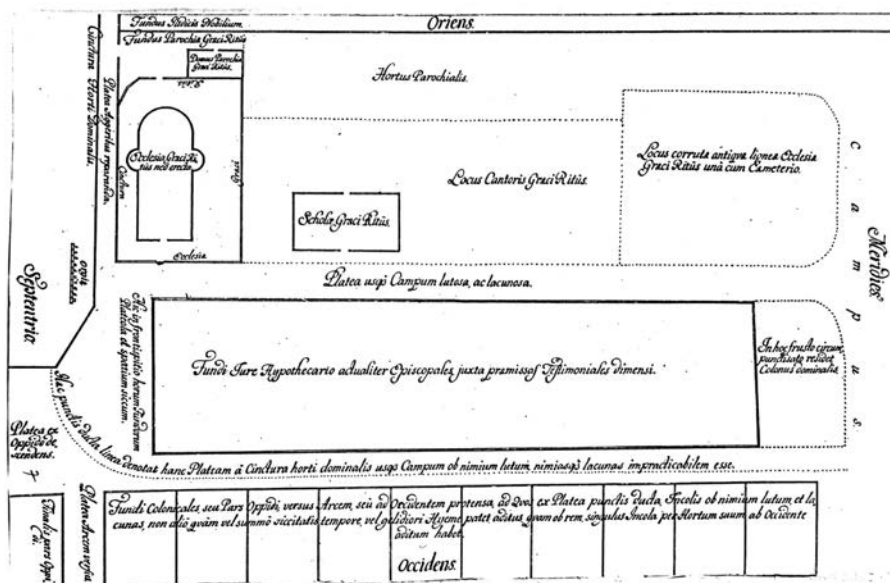 Oriens.
Fundus Iudicis Nobilium.
Fundus Parochiæ Græci Ritûs
Domus Parochiæ
Græci Ritûs.
Cinctura Horti Dominalis.
Platea Aggeribus reparanda.
Cinctura
Ecclesia Græci Ri-
tûs neo erecta
Græci
Ecclesiæ
Hortus Parochialis.
Locus Cantoris Græci Ritûs.
Scholæ Græci Ritûs.
Locus corrutæ antiquæ ligneæ Ecclesiæ
Græci Ritûs unà cum Cæmeterio.
Campus.
Meridies.
Septentrio
orgiæ
Platea usq3 Campum lutosa, ac lacunosa.
Hic in frontispitio horum Fundorum
Plateola et spatium siccum.
Fundi Iure Hypothecario actualiter Episcopales, juxta præmissas Testimoniales dimensi.
In hoc frusto circum
punctisato residet
Colonus dominalis.
Hæc punctis ducta linea denotat hanc Plateam à Cinctura horti dominalis usq3 Campum ob nimium lutum, nimiasq3 lacunas impracticabilem esse.
Platea ex
Oppido de-
scendens.
Platea Arcem versus
Fundi Colonicales, seu Pars Oppidi, versus Arcem, seù ad Occidentem protensa, ad Quos ex Platea punctis ducta, Incolis ob nimium lutum, et la-
cunas, non aliô quàm vel summô siccitatis tempore, vel gelidiori Hyeme patet aditus, quam ob rem, singulus Incola per Hortum suum ab Occidente
aditum habet.
Occidens.